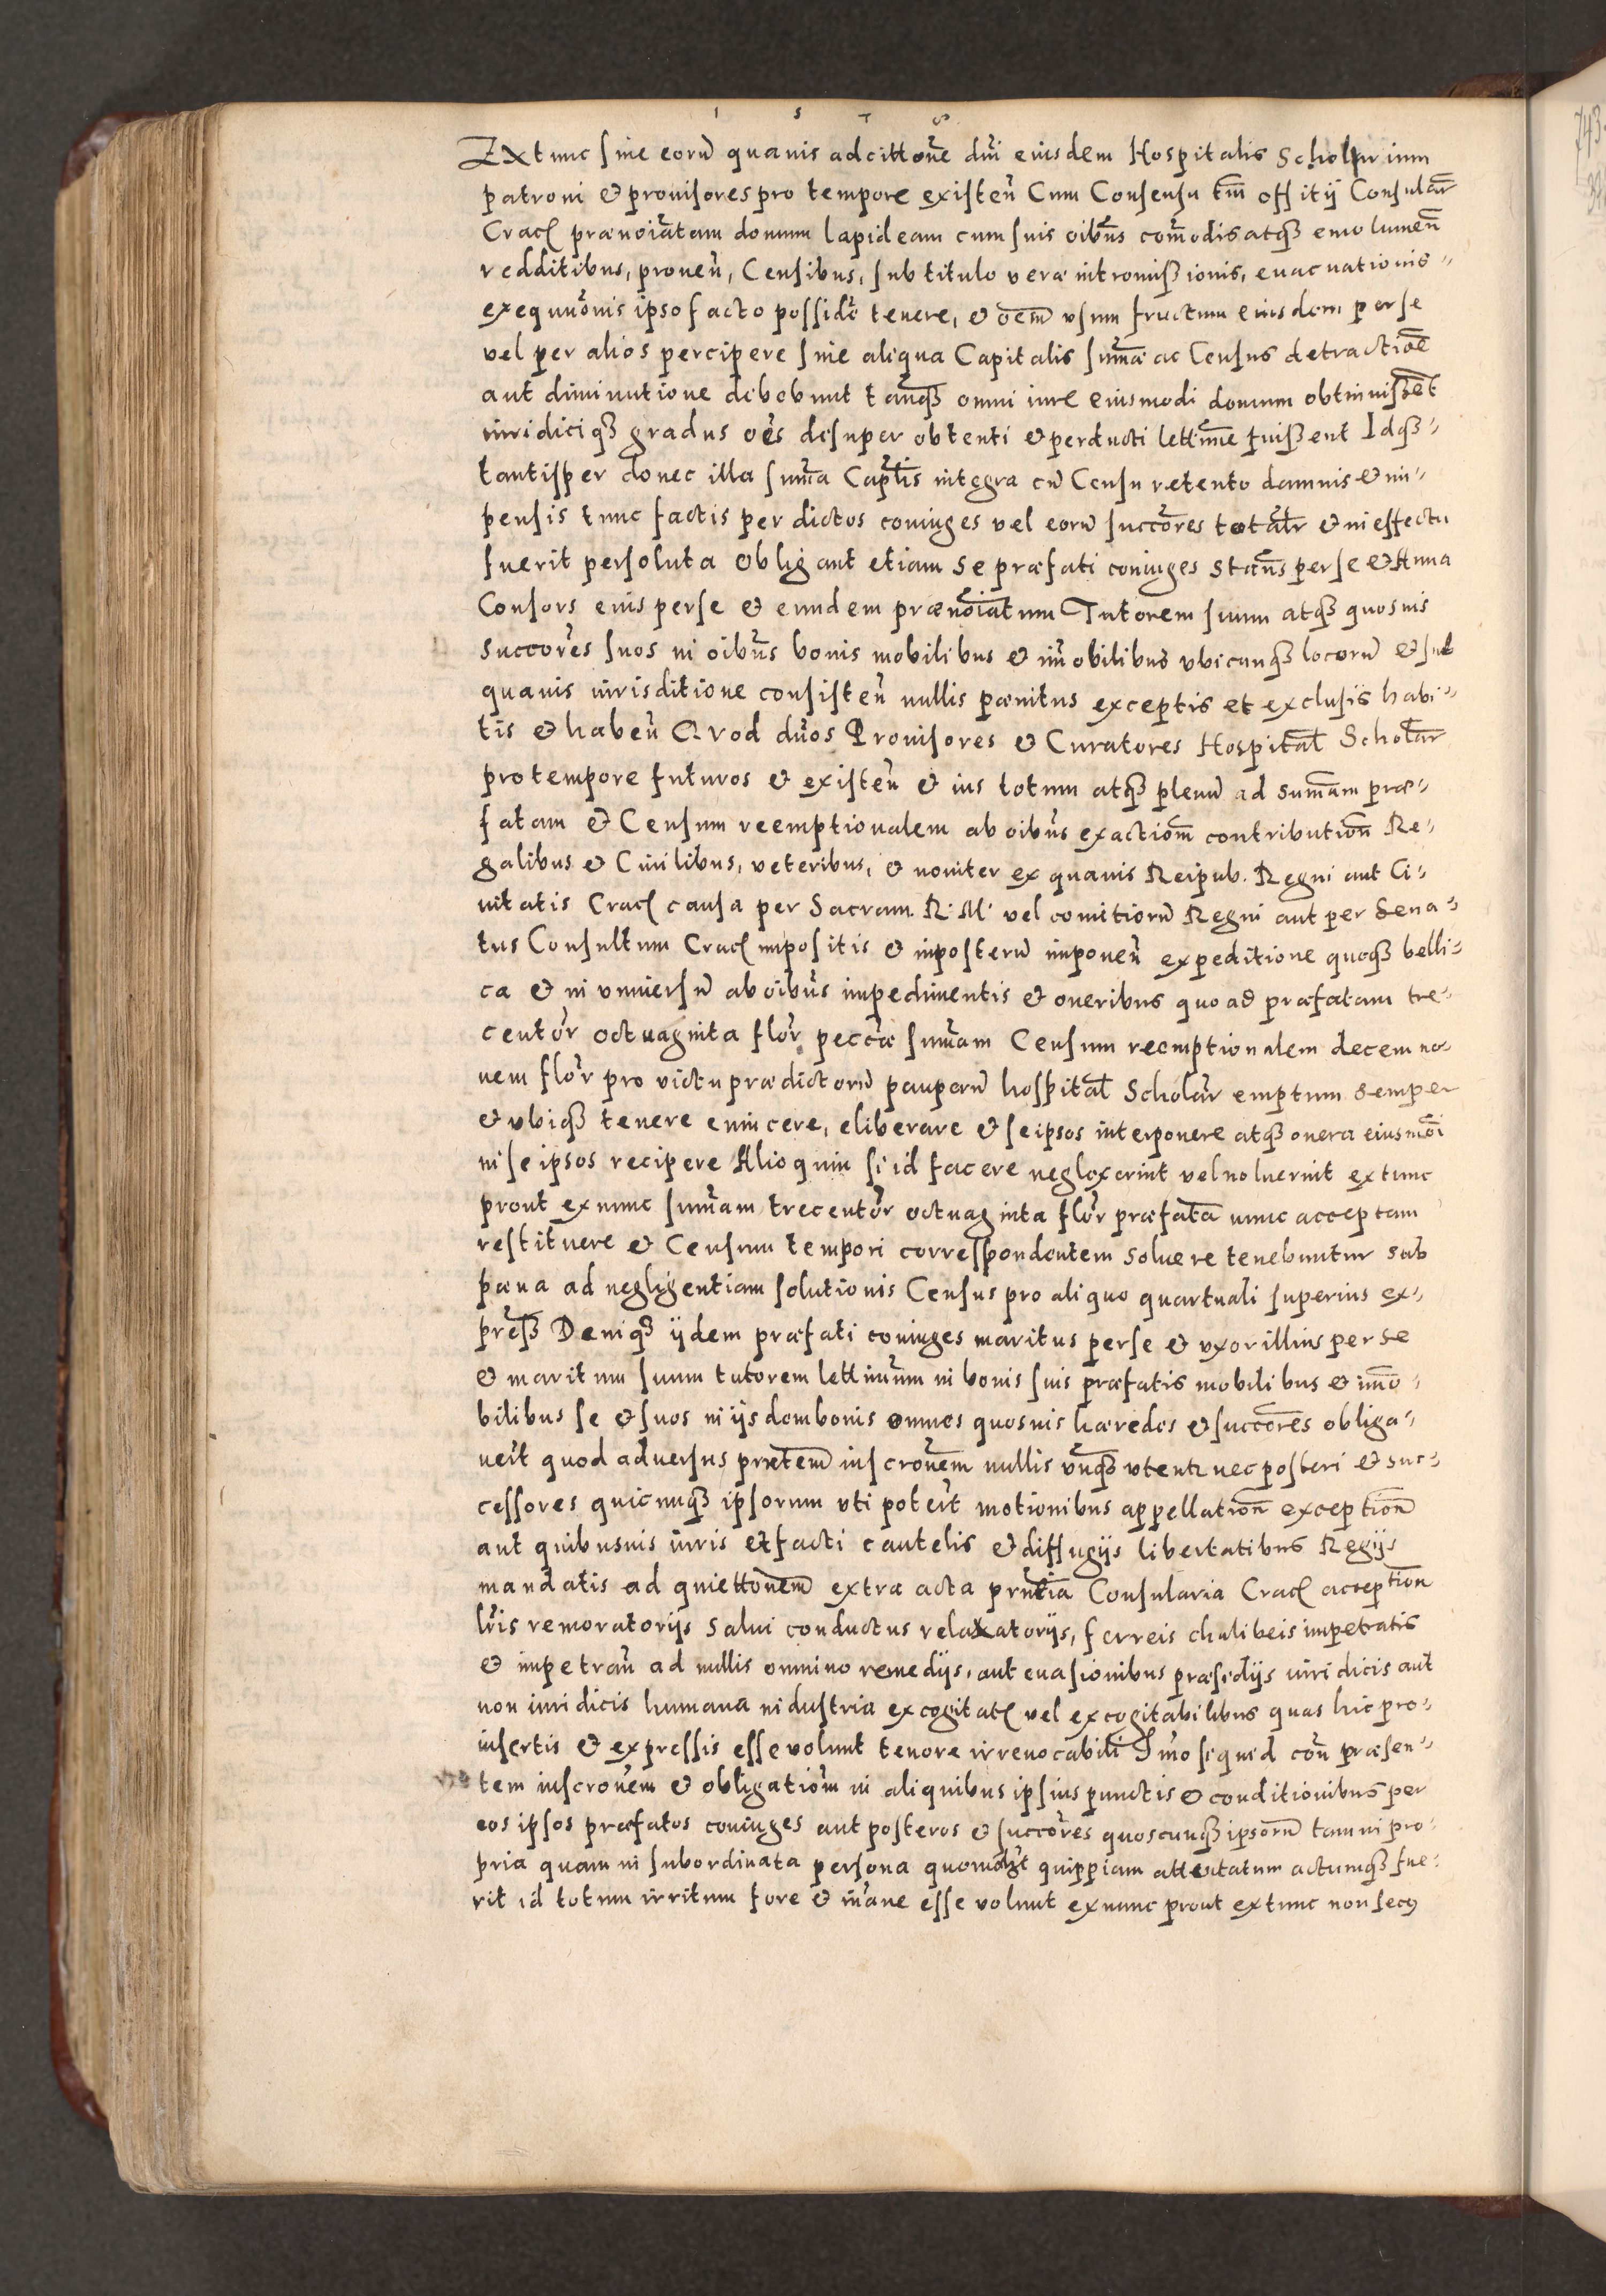 1 5 7 8
Extunc sine eorũ quauis adcittoñe dñi eiusdem Hospitalis Scholarium
patroni & prouisores pro tempore existeñ Cum Consensu tm̃ offitij Consular̃
Crac̃ prænoiãtam domum lapideam cum suis oibũs com̃odis atq3 emolumeñ
redditibus, proueñ, Censibus, sub titulo veræ intromißionis, euacuationis
exequuõnis ipso facto possidẽ tenere, & oem̃ vsum fructum eiusdem per se
vel per alios percipere sine aliqua Capitalis sum̃æ ac Census detractioẽ
aut diminutione debebunt tanq̃3 omni iure eiusmodi domum obtinuißẽt
iuridiciq3 gradus oẽs desuper obtenti & perducti lettim̃e fuißent Idq3
tantisper donec illa sum̃a Captl̃is integra cũ Censu retento damnis & im-
pensis tunc factis per dictos coniuges vel eorũ succõres totalr̃ & in effectu
fuerit persoluta Obligant etiam se præfati coniuges Stañs per se & Anna
Consors eius per se & eundem prænoĩatum Tutorem suum atq3 quosuis
succorẽs suos in oibũs bonis mobilibus & im̃obilibus vbicunq3 locorũ & sub
quauis iurisditione consisteñ nullis pænitus exceptis et exclusis habi-
tis & habeñ Quod dños Prouisores & Curatores Hospital̃ Scholar̃
pro tempore futuros & existeñ & ius totum atq3 plenũ ad sum̃am præ-
fatam & Censum reemptionalem ab oibũs exactioñ contributioñ Re-
galibus & Ciuilibus, veteribus, & nouiter ex quauis Reipub. Regni aut Ci-
uitatis Crac̃ causa per Sacram R. M. vel comitiorũ Regni aut per Sena-
tus Consultum Crac̃ impositis & inposterũ imponeñ expeditione quoq3 belli-
ca & in vniuersũ ab oibũs impedimentis & oneribus quo ad præfatam tre-
centor̃ octuaginta flor̃ peccũæ sum̃am Censum reemptionalem decem no-
uem flor̃ pro victu prædictorũ pauperũ hospital̃ Scholar̃ emptum semper
& vbiq3 tenere euincere, eliberare & seipsos interponere atq3 onera eiusmõi
in se ipsos recipere Alioquin si id facere neglexerint vel noluerint extunc
prout exnunc sum̃am trecentor̃ octuaginta flor̃ præfatã nunc acceptam
restituere & Censum tempori correspondentem soluere tenebuntur sub
pæna ad negligentiam solutionis Census pro aliquo quartuali superius ex-
preß Deniq3 ijdem præfati coniuges maritus per se & vxor illius per se
& maritum suum tutorem lettimũm in bonis suis præfatis mobilibus & im̃o-
bilibus se & suos in ijsdem bonis omnes quosuis hæredes & succorẽs obliga-
uerũt quod aduersus prætem̃ inscronẽm nullis vnq̃3 vtentr̃ nec posteri & suc-
cessores quicunq3 ipsorum vti poterũt motionibus appellatioñ exceptioñ
aut quibusuis iuris et facti cautelis & diffugijs libertatibus Regijs
mandatis ad quiettonẽm extra acta prñtia Consularia Crac̃ acceptioñ
lrĩs remoratorijs salui conductus relaxatorijs, ferreis chalibeis impetratis
& impetrañ ad nullis omnino remedijs, aut euasionibus præsidijs iuridicis aut
non iuridicis humana industria excogitat̃ vel excogitabilibus quas hic pro
insertis & expressis esse volunt tenore irreuocabili Imo siquid cõn præsen-
tem inscronẽm & obligatioñm in aliquibus ipsius punctis & conditionibus per
eos ipsos præfatos coniuges aut posteros & succorẽs quoscunq3 ipsorũ tam in pro-
pria quam in subordinata persona quomõlt quippiam attentatum actumq3 fue-
rit id totum irritum fore & inane esse volunt exnunc prout extunc non secq